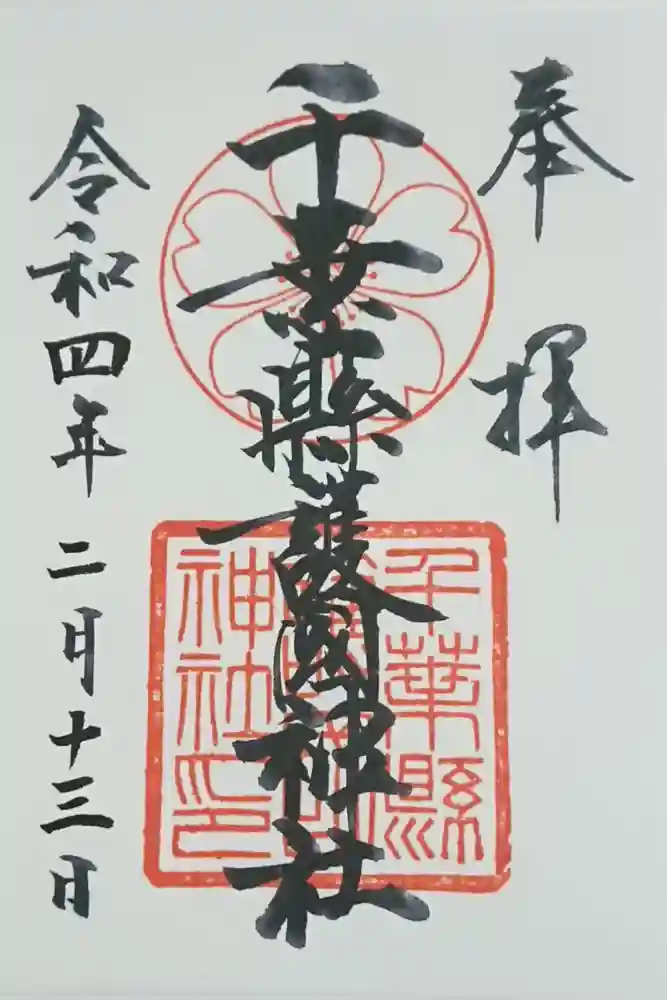 奉拝
千葉縣護國神社
令和四年二月十三日
千葉縣
護國
神社印